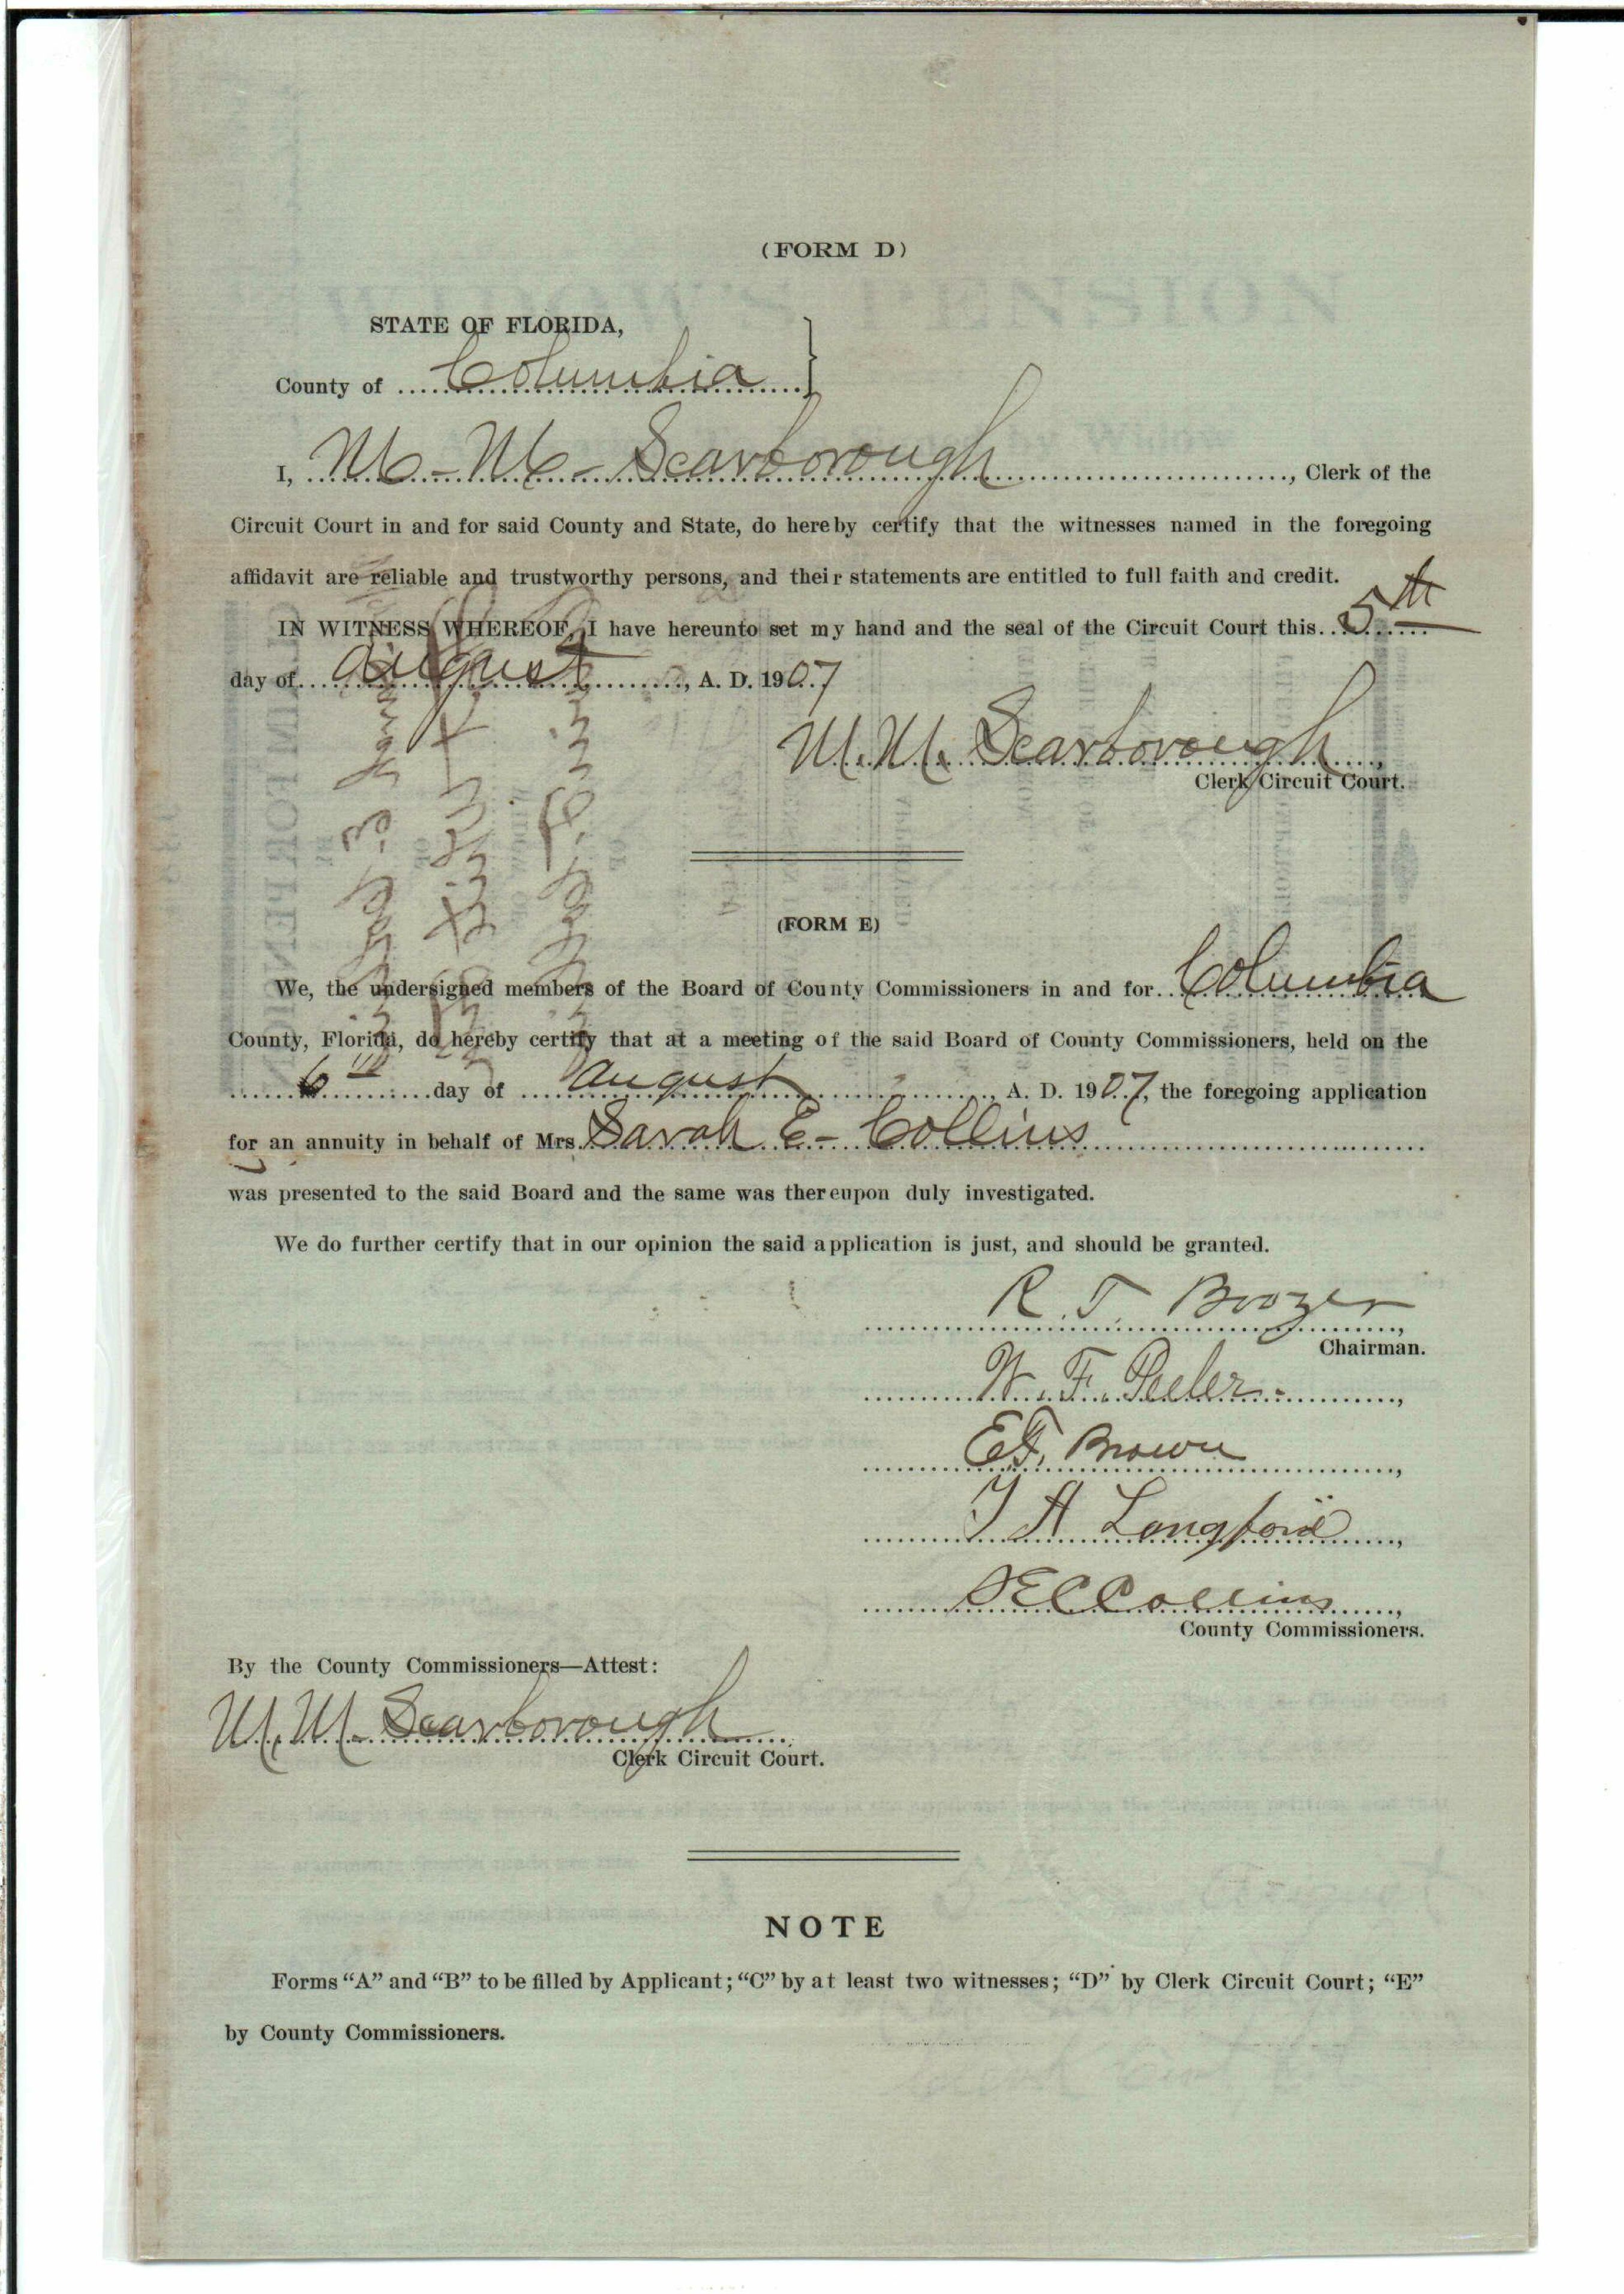 (FORM D)
STATE OF FLORIDA,
County of Columbia
I, M. M. Scarborough, Clerk of the
Circuit Court in and for said County and State, do hereby certify that the witnesses named in the foregoing
affidavit are reliable and trustworthy persons, and their statements are entitled to full faith and credit.
IN WITNESS WHEREOF, I have hereunto set my hand and the seal of the Circuit Court this 5th
day of August, A. D. 1907
M. M. Scarborough,
Clerk Circuit Court.
(FORM E)
We, the undersigned members of the Board of County Commissioners in and for Columbia
County, Florida, do hereby certify that at a meeting of the said Board of County Commissioners, held on the
6th day of August, A. D. 1907, the foregoing application
for an annuity in behalf of Mrs. Sarah E- Collins
was presented to the said Board and the same was thereupon duly investigated.
We do further certify that in our opinion the said application is just, and should be granted.
R. T. Boozer,
Chairman.
W. F. Peeler,
E. F. Brown,
T A Langford,
S E C Collins,
County Commissioners.
By the County Commissioners—Attest:
M. M. Scarborough
Clerk Circuit Court.
NOTE
Forms "A" and "B" to be filled by Applicant; "C" by at least two witnesses; "D" by Clerk Circuit Court; "E"
by County Commissioners.